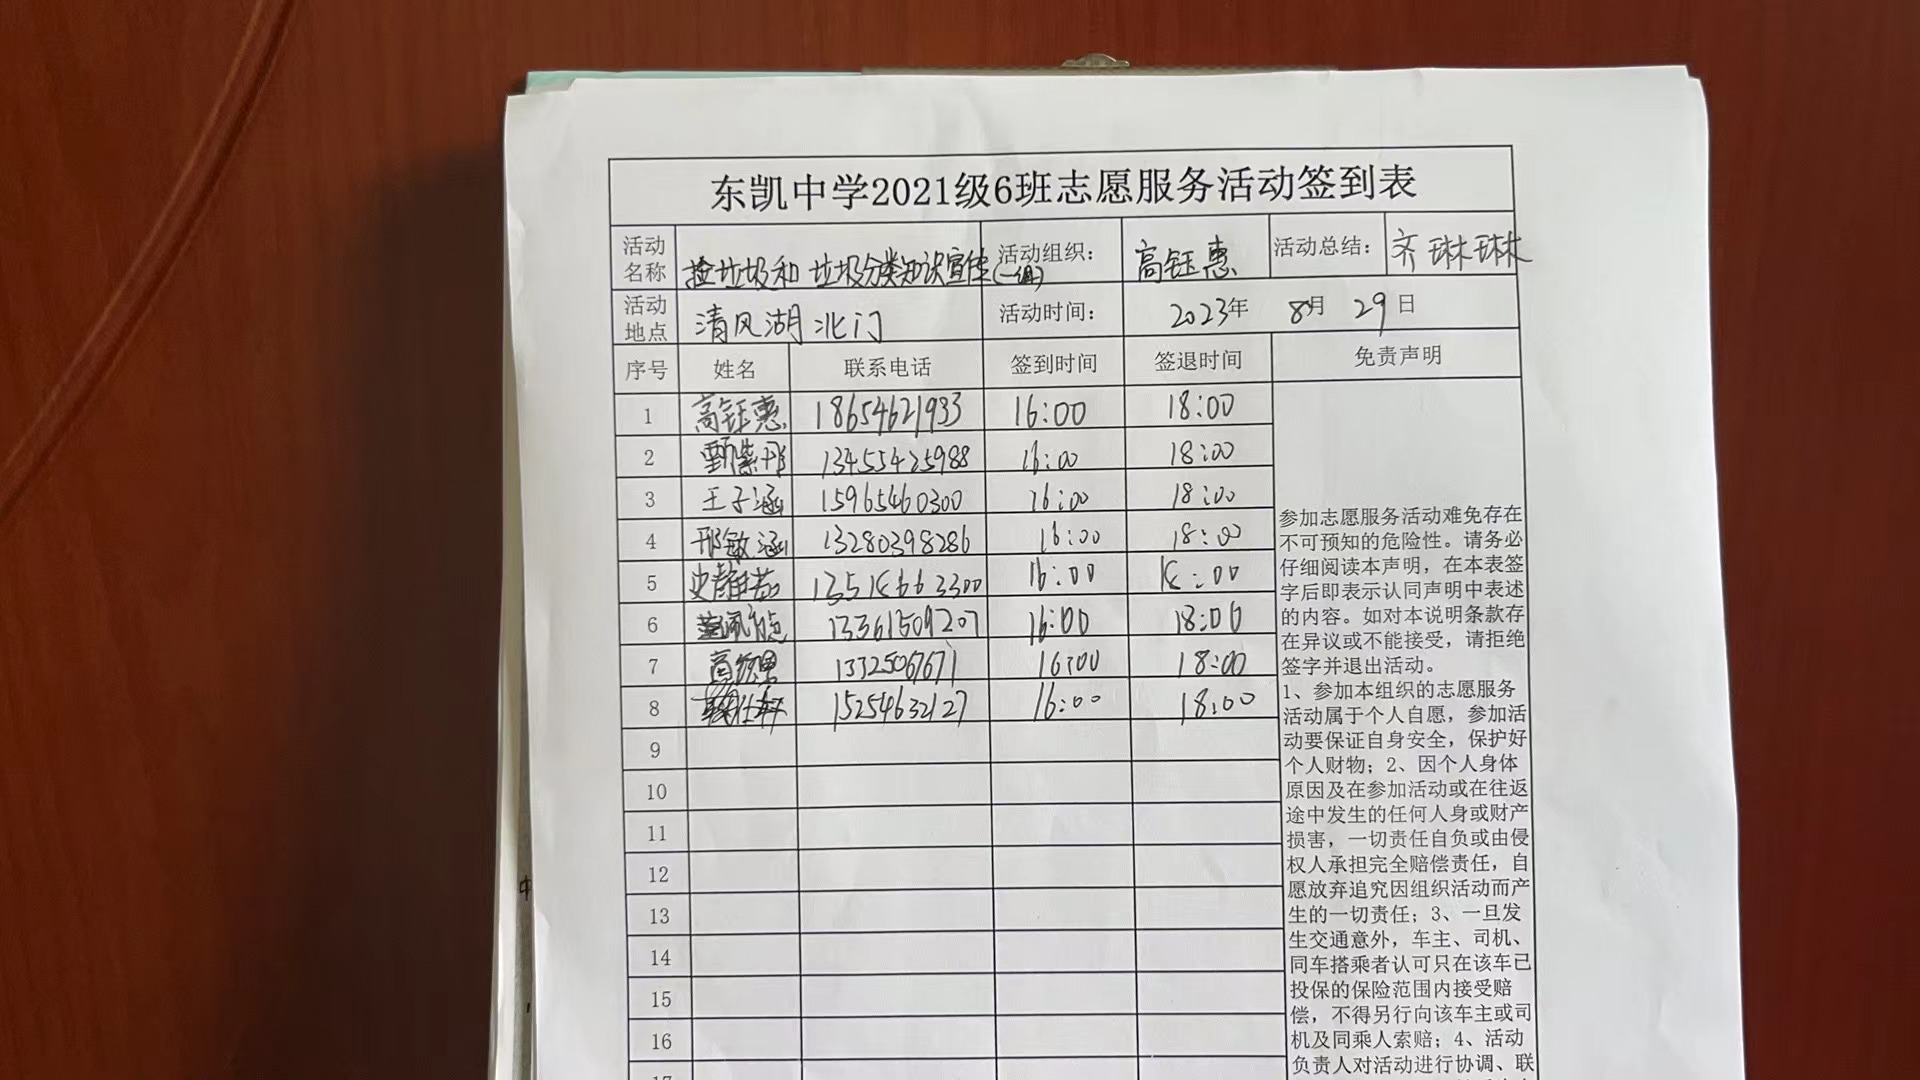 东凯中学2021级6班志愿服务活动签到表
活动名称 捡垃圾和垃圾分类知识宣传(一组) 活动组织: 高钰惠 活动总结: 齐琳琳
活动地点 清风湖北门 活动时间: 2023年 8月 29日
序号 姓名 联系电话 签到时间 签退时间 免责声明
1 高钰惠 18654621933 16:00 18:00
2 甄紫彤 13455425988 16:00 18:00
3 王子涵 15965460300 16:00 18:00
4 邢敏涵 13280398286 16:00 18:00
5 史静茹 16:00 18:00
6 13361509207 16:00 18:00
7 13325067671 16:00 18:00
8 15254632127 16:00 18:00
9
10
11
12
13
14
15
16
17
参加志愿服务活动难免存在
不可预知的危险性。请务必
仔细阅读本声明，在本表签
字后即表示认同声明中表述
的内容。如对本说明条款存
在异议或不能接受，请拒绝
签字并退出活动。
1、参加本组织的志愿服务
活动属于个人自愿，参加活
动要保证自身安全，保护好
个人财物；2、因个人身体
原因及在参加活动或在往返
途中发生的任何人身或财产
损害，一切责任自负或由侵
权人承担完全赔偿责任，自
愿放弃追究因组织活动而产
生的一切责任；3、一旦发
生交通意外，车主、司机、
同车搭乘者认可只在该车已
投保的保险范围内接受赔
偿，不得另行向该车主或司
机及同乘人索赔；4、活动
负责人对活动进行协调、联